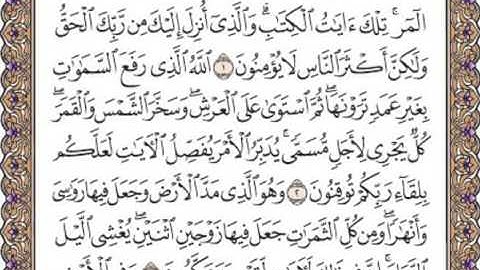 الٓمٓرۚ تِلۡكَ ءَايَٰتُ ٱلۡكِتَٰبِۗ وَٱلَّذِيٓ أُنزِلَ إِلَيۡكَ مِن رَّبِّكَ ٱلۡحَقُّ
وَلَٰكِنَّ أَكۡثَرَ ٱلنَّاسِ لَا يُؤۡمِنُونَ ١ ٱللَّهُ ٱلَّذِي رَفَعَ ٱلسَّمَٰوَٰتِ
بِغَيۡرِ عَمَدٖ تَرَوۡنَهَاۖ ثُمَّ ٱسۡتَوَىٰ عَلَى ٱلۡعَرۡشِۖ وَسَخَّرَ ٱلشَّمۡسَ وَٱلۡقَمَرَۖ
كُلّٞ يَجۡرِي لِأَجَلٖ مُّسَمّٗىۚ يُدَبِّرُ ٱلۡأَمۡرَ يُفَصِّلُ ٱلۡأٓيَٰتِ لَعَلَّكُم
بِلِقَآءِ رَبِّكُمۡ تُوقِنُونَ ٢ وَهُوَ ٱلَّذِي مَدَّ ٱلۡأَرۡضَ وَجَعَلَ فِيهَا رَوَٰسِيَ
وَأَنۡهَٰرٗاۖ وَمِن كُلِّ ٱلثَّمَرَٰتِ جَعَلَ فِيهَا زَوۡجَيۡنِ ٱثۡنَيۡنِۖ يُغۡشِي ٱلَّيۡلَ